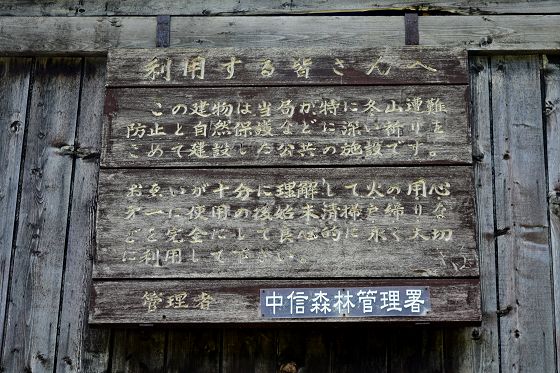 利用する皆さんへ
この建物は当局が特に冬山遭難
防止と自然保護などに深い祈りを
こめて建設した公共の施設です。
お互いが十分に理解して火の用心
第一に使用の後始末清掃戸締りな
どを完全にして良心的に永く大切
に利用して下さい。
管理者
中信森林管理署